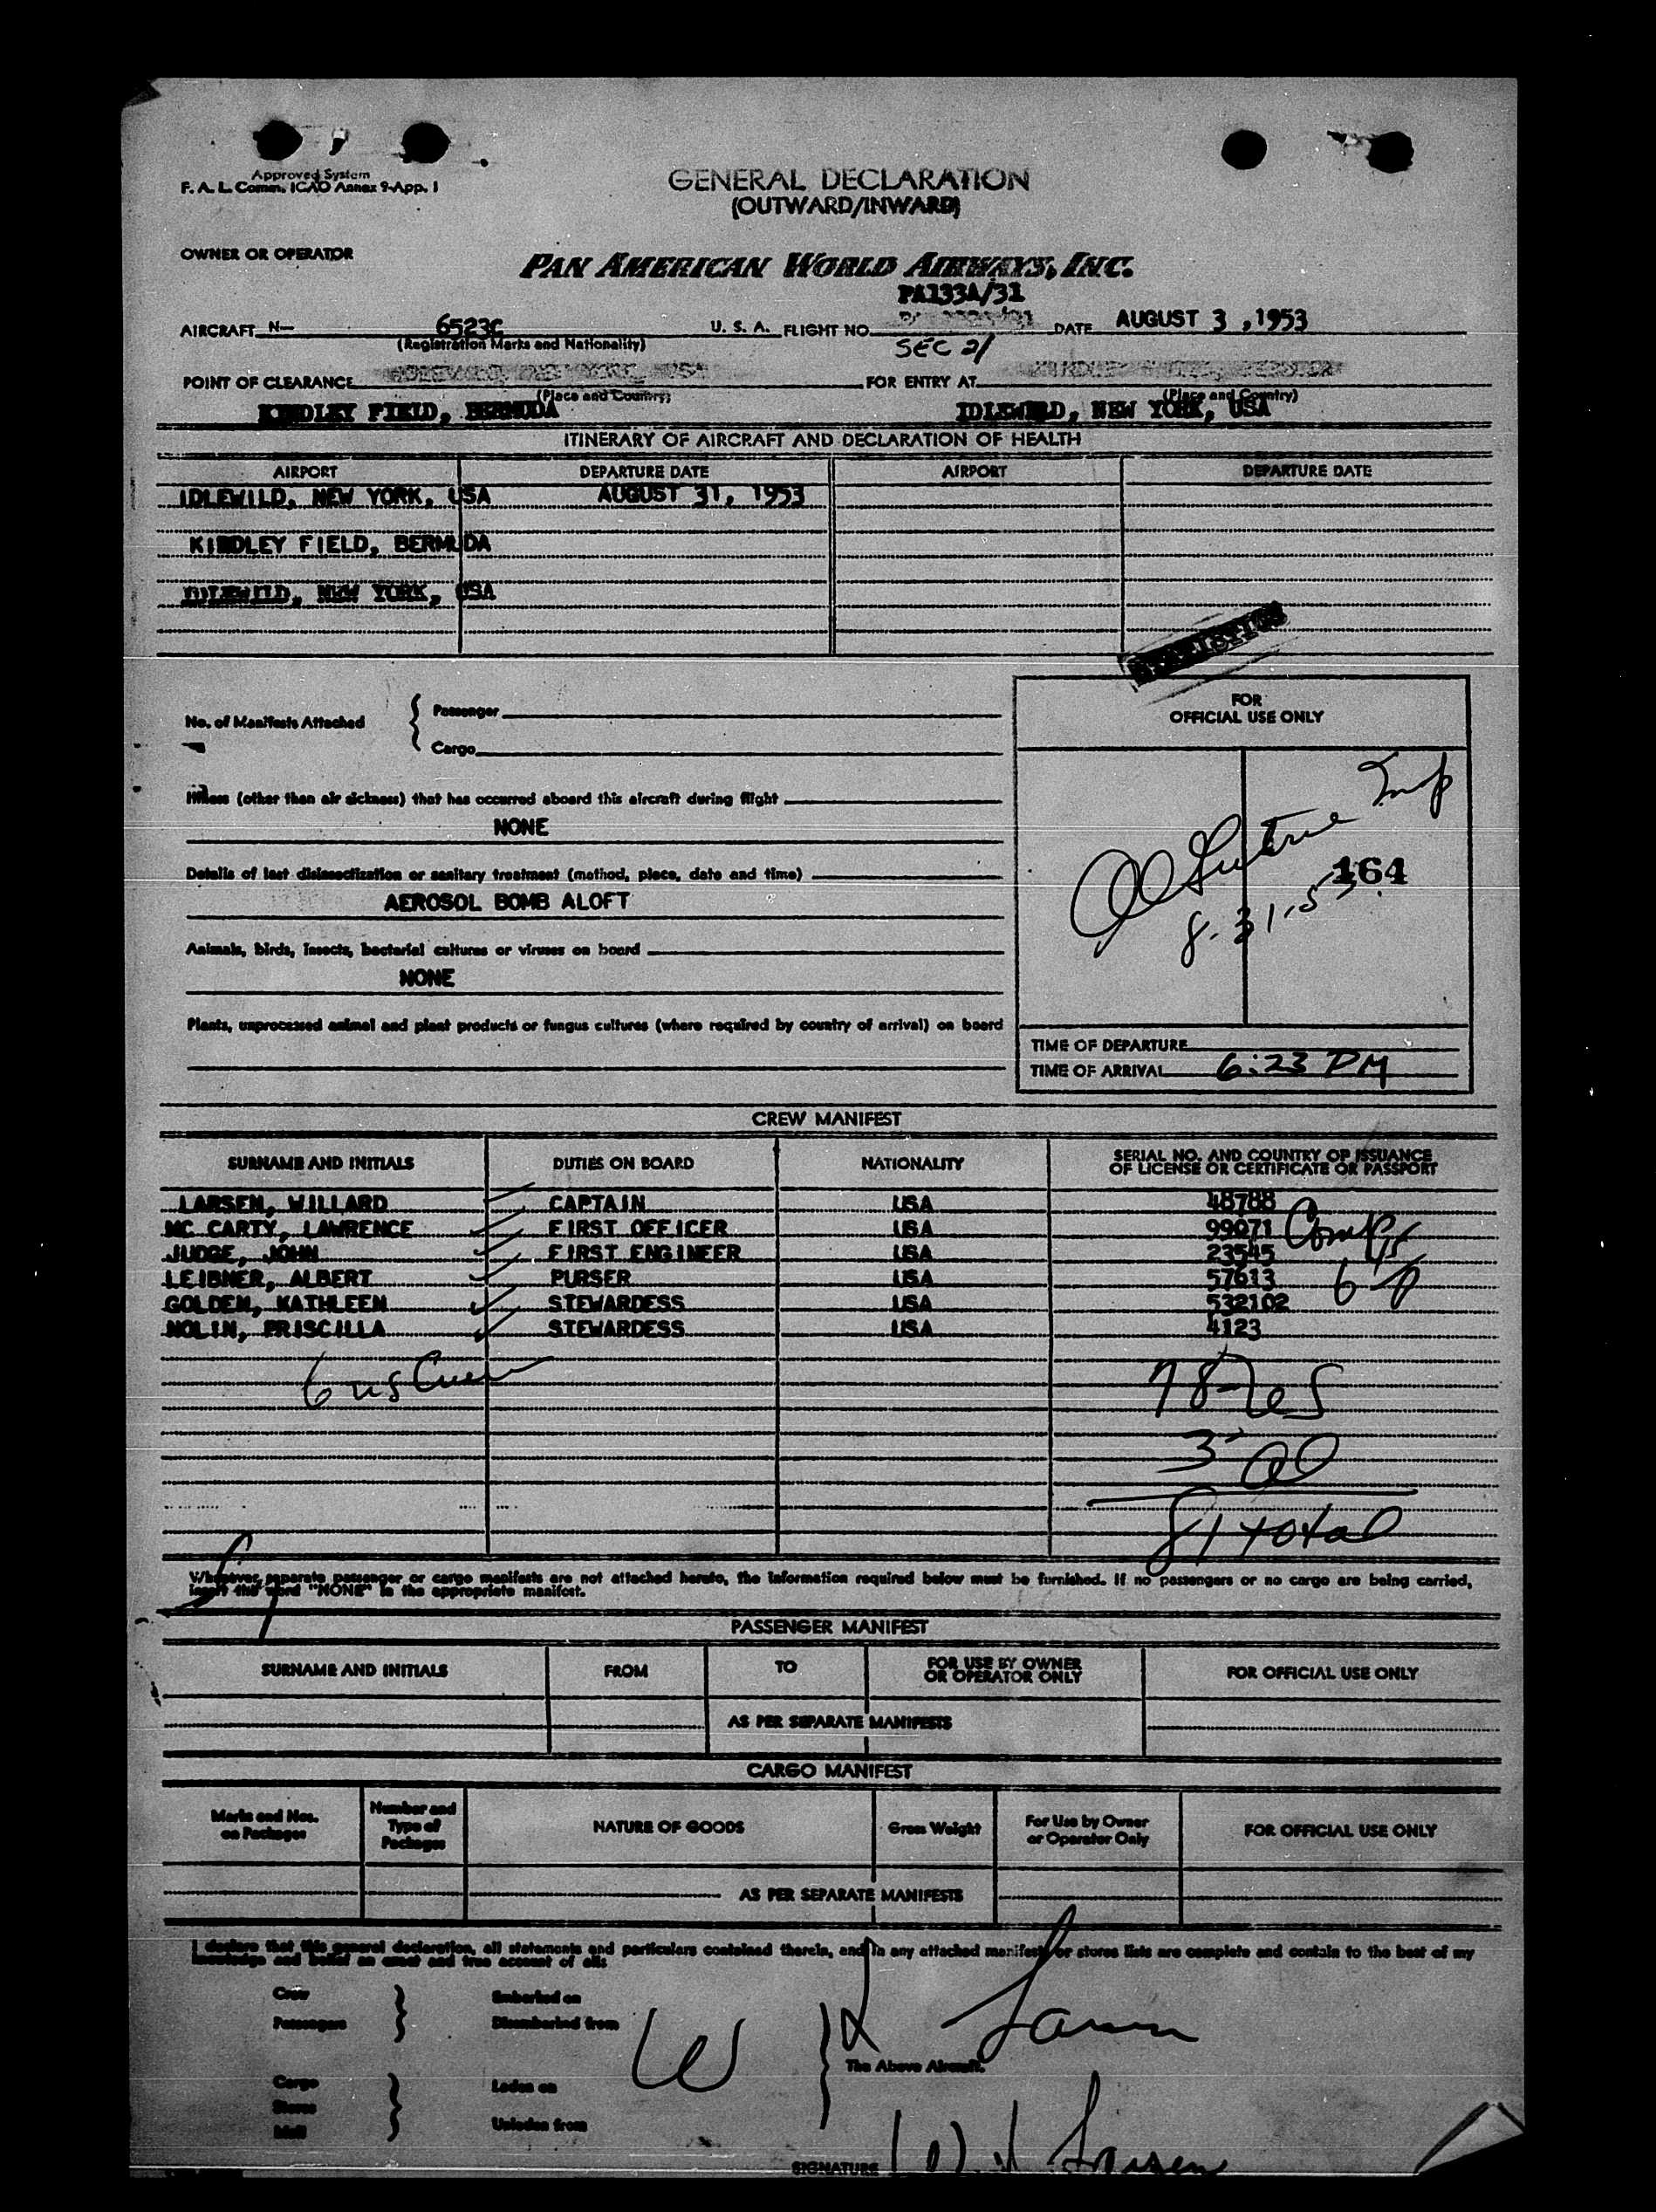 Approved System
F. A. L. Comm. ICAO Annex 9-App. 1
GENERAL DECLARATION
(OUTWARD/INWARD)
OWNER OR OPERATOR
PAN AMERICAN WORLD AIRWAYS, INC.
PA133A/31
AIRCRAFT N- 6523C U. S. A. FLIGHT NO. DATE AUGUST 3 , 1953
(Registration Marks and Nationality)
SEC 2/
POINT OF CLEARANCE FOR ENTRY AT
(Place and Country) (Place and Country)
KINDLEY FIELD, BERMUDA IDLEWILD, NEW YORK, USA
ITINERARY OF AIRCRAFT AND DECLARATION OF HEALTH
AIRPORT DEPARTURE DATE AIRPORT DEPARTURE DATE
IDLEWILD, NEW YORK, USA AUGUST 31, 1953
KINDLEY FIELD, BERMUDA
IDLEWILD, NEW YORK, USA
STATISTICS
No. of Manifests Attached
Passenger
Cargo
FOR
OFFICIAL USE ONLY
Illness (other than air sickness) that has occurred aboard this aircraft during flight
NONE
Details of last disinsectization or sanitary treatment (method, place, date and time)
AEROSOL BOMB ALOFT
Insp
164
8-31-53
Animals, birds, insects, bacterial cultures or viruses on board
NONE
Plants, unprocessed animal and plant products or fungus cultures (where required by country of arrival) on board
TIME OF DEPARTURE
TIME OF ARRIVAL 6:23 PM
CREW MANIFEST
SURNAME AND INITIALS DUTIES ON BOARD NATIONALITY SERIAL NO. AND COUNTRY OF ISSUANCE
OF LICENSE OR CERTIFICATE OR PASSPORT
LARSEN, WILLARD CAPTAIN USA 48788
MC CARTY, LAWRENCE FIRST OFFICER USA 99071
JUDGE, JOHN FIRST ENGINEER USA 23545
LEIBNER, ALBERT PURSER USA 57613
GOLDEN, KATHLEEN STEWARDESS USA 532102
NOLIN, PRISCILLA STEWARDESS USA 4123
6 us Crew
78
3
81 total
Whenever separate passenger or cargo manifests are not attached hereto, the information required below must be furnished. If no passengers or no cargo are being carried,
insert the word "NONE" in the appropriate manifest.
PASSENGER MANIFEST
SURNAME AND INITIALS FROM TO FOR USE BY OWNER
OR OPERATOR ONLY FOR OFFICIAL USE ONLY
AS PER SEPARATE MANIFESTS
CARGO MANIFEST
Marks and Nos.
on Packages
Number and
Type of
Packages
NATURE OF GOODS
Gross Weight
For Use by Owner
or Operator Only
FOR OFFICIAL USE ONLY
AS PER SEPARATE MANIFESTS
I declare that this general declaration, all statements and particulars contained therein, and in any attached manifests or stores lists are complete and contain to the best of my
knowledge and belief an exact and true account of all:
Crew Embarked on
Passengers Disembarked from
W L Larsen
The Above Aircraft.
Cargo Laden on
Stores
Mail Unladen from
SIGNATURE W L Larsen